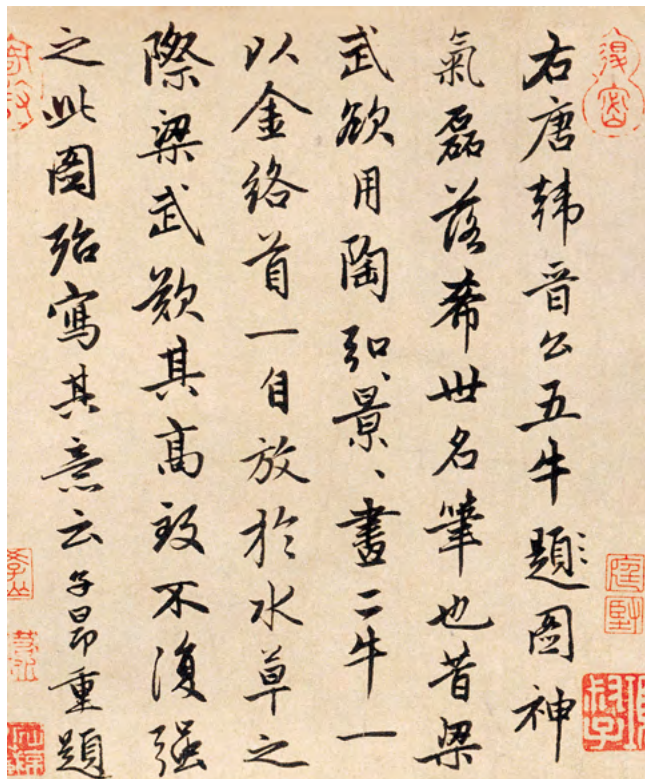 右唐韓晋公五牛題圖神
氣磊落希世名筆也昔梁
武欲用陶弘景、畫二牛一
以金絡首一自放於水草之
際梁武歎其高致不復强
之此圖殆寫其意云子昂重題